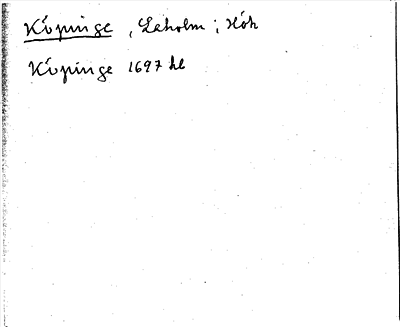 Köpinge, Laholm; Hök
Köpinge 1697 hl